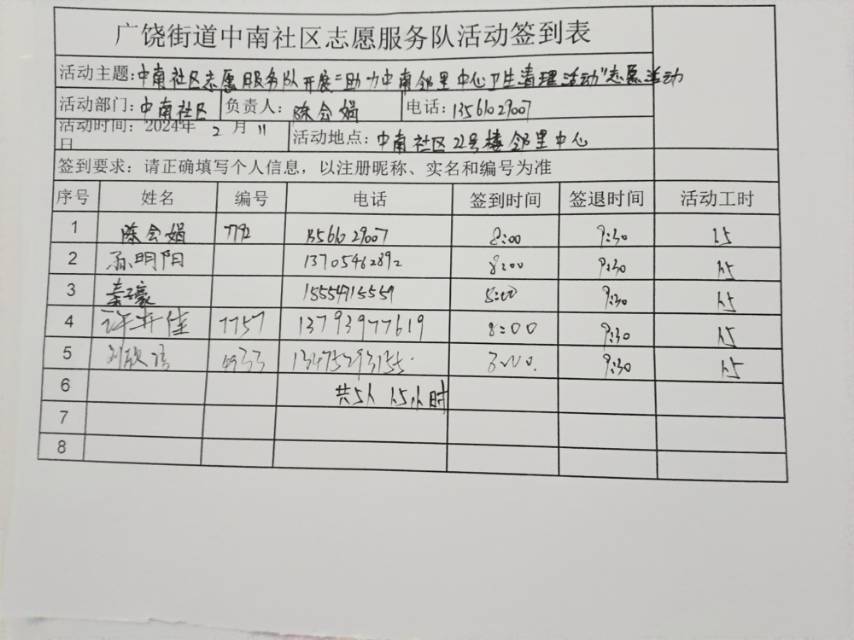 广饶街道中南社区志愿服务队活动签到表
活动主题:中南社区志愿服务队开展"助力中南邻里中心卫生清理活动"志愿活动
活动部门:中南社区 负责人:陈会娟 电话:13561029007
活动时间:2024年 2 月 11 日 活动地点:中南社区22号楼邻里中心
签到要求:请正确填写个人信息,以注册昵称、实名和编号为准
序号 姓名 编号 电话 签到时间 签退时间 活动工时
1 陈会娟 7792 13561029007 8:00 9:30 1.5
2 孙明阳 13705462892 8:00 9:30 1.5
3 8:00 9:30 1.5
4 7757 13793977619 8:00 9:30 1.5
5 13475293155 8:00 9:30 1.5
6 共5人 1.5小时
7
8